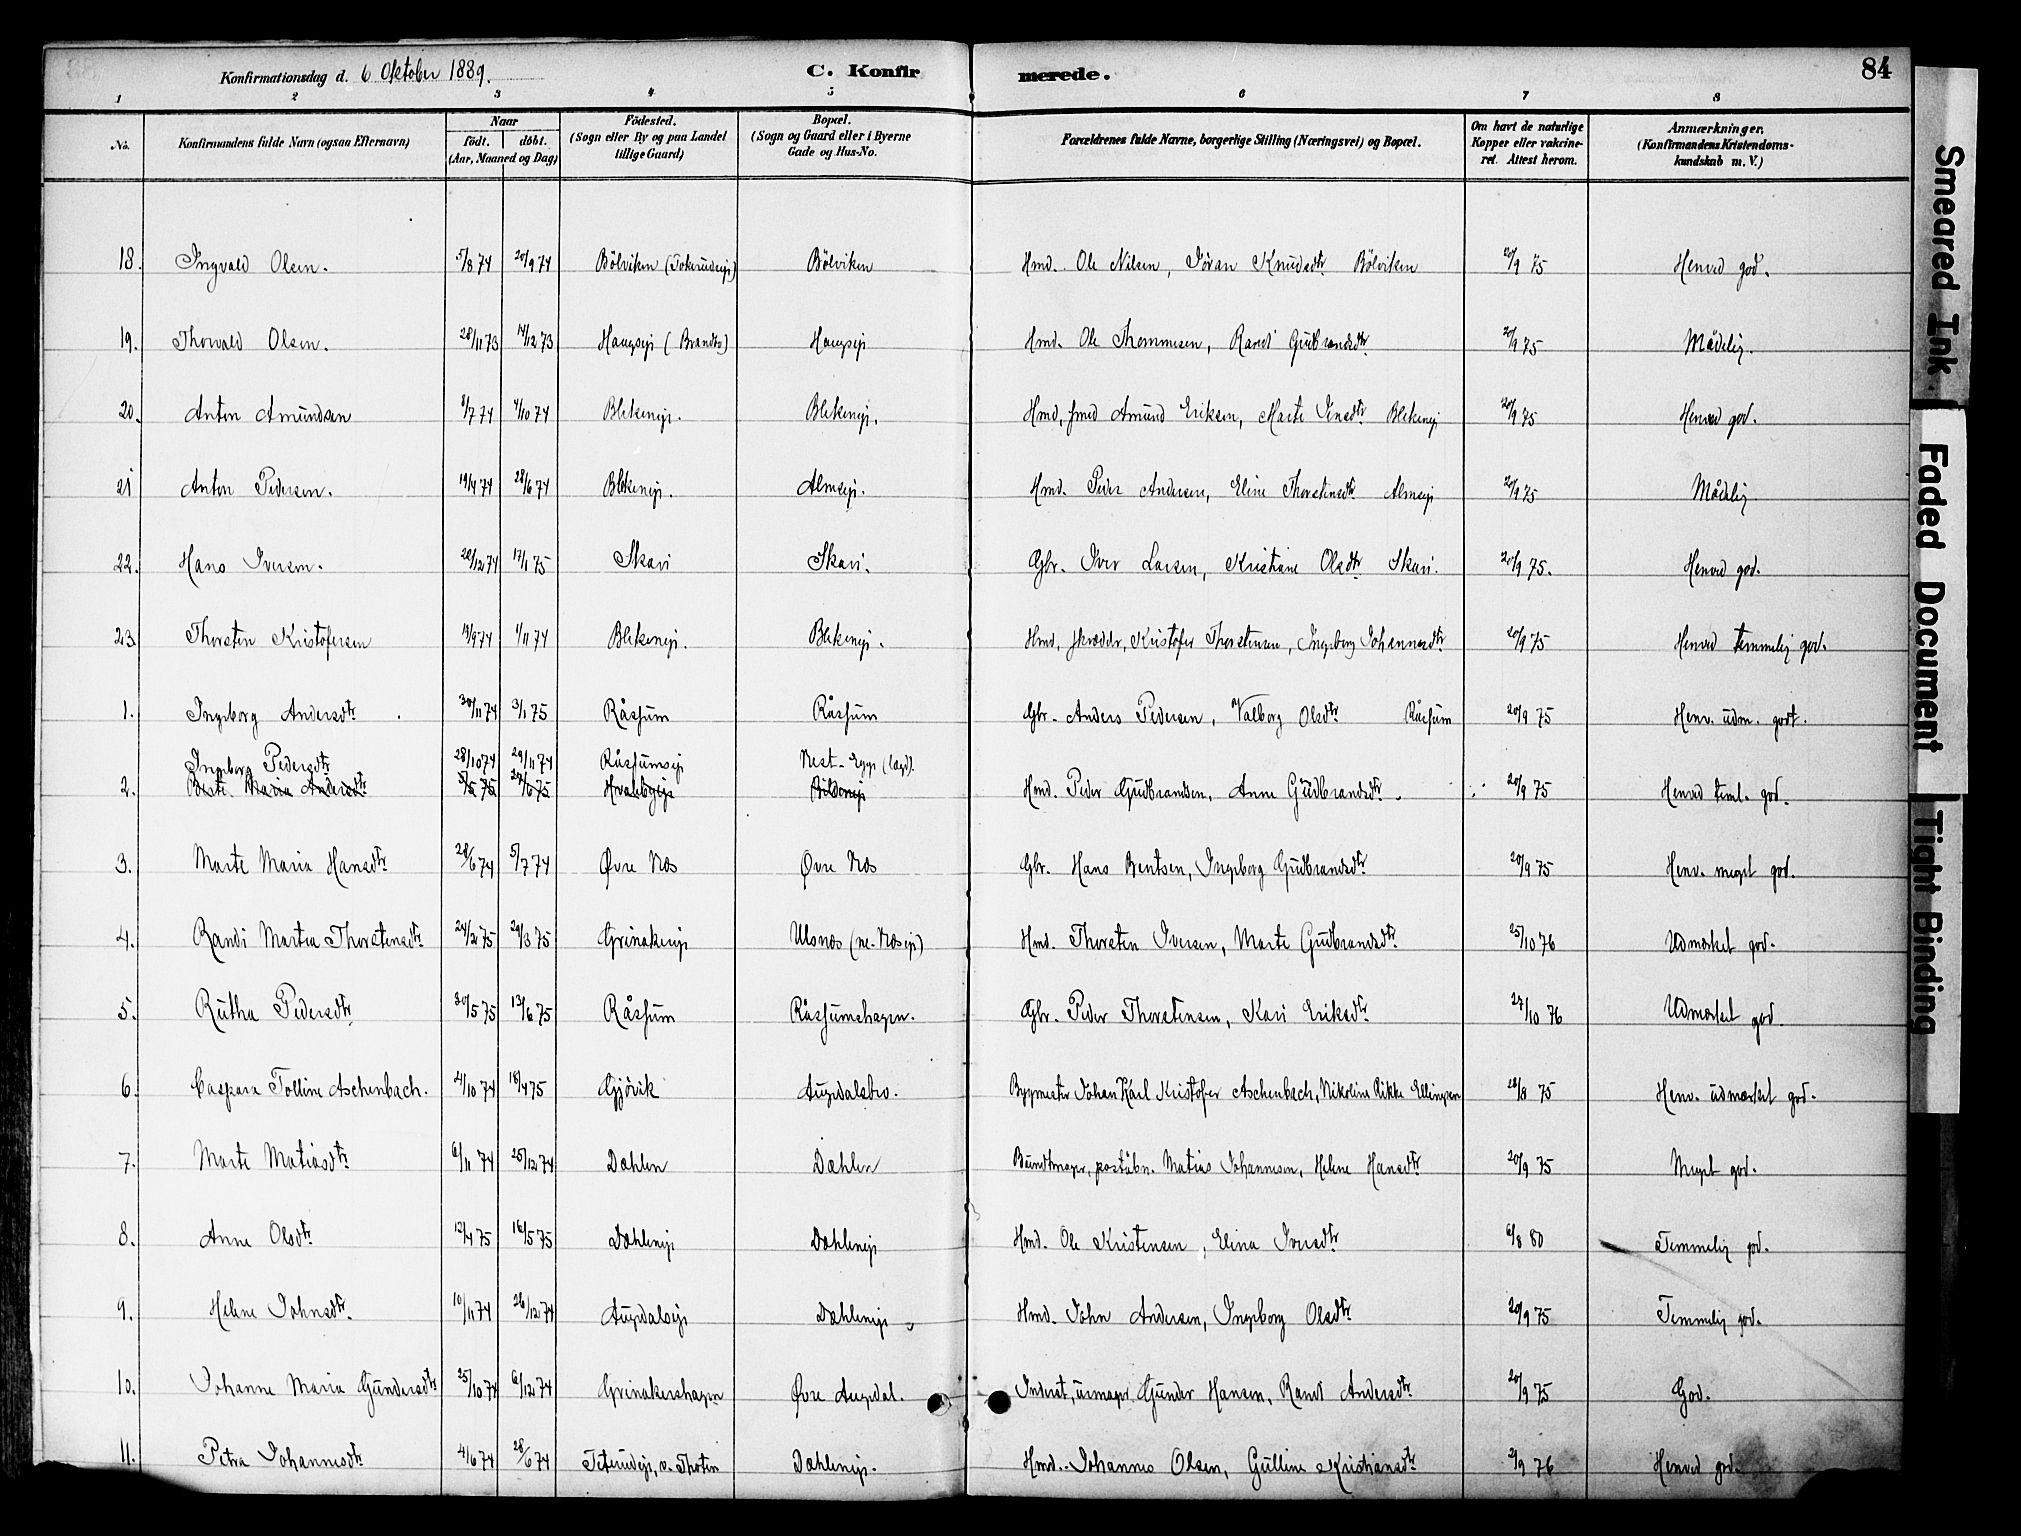 Konfirmationsdag d. 6 Oktober 1889. C. Konfirmerede. 84
1 2 3 4 5 6 7 8
No. Konfirmandens fulde Navn (ogsaa Efternavn) Naar födt. döbt. (Aar, Maaned og Dag) Födested. (Sogn eller By og paa Landet tillige Gaard) Bopæl. (Sogn og Gaard eller i Byerne Gade og Hus-No. Forældrenes fulde Navne, borgerlige Stilling (Næringsvei) og Bopæl. Om havt de naturlige Kopper eller vakcineret. Attest herom. Anmærkninger. (Konfirmandens Kristendomskundskab m. V.)
18. Ingvald Olsen. 5/8 74 20/9 74 Bölviken Bölviken Hmd. Ole Nilsen, Jöran Knudsdtr Bölviken 20/9 75 Henved god.
19. Thorvald Olsen. 28/11 73 14/12 73 Haugseje (Brandbo) Haugseje Hmd. Ole Thommesen, Randi Gudbrandsdtr 20/9 75 Mådelig.
20. Anton Amundsen 8/7 74 4/10 74 Blekeneje. Blekeneje. Hmd, smed Amund Eriksen, Marte Jensdtr Blekeneje 20/9 75 Henved god.
21 Anton Pedersen. 19/4 74 28/6 74 Blekeneje. Almseje. Hmd. Peder Andersen, Eline Thorstensdtr Almseje 20/9 75 Mådelig
22. Hans Iversen. 22/12 74 17/1 75 Skari Skari. Gbr. Iver Larsen, Kristiane Olsdtr Skari. 20/9 75. Henved god.
23. Thorsten Kristofersen 19/9 74 1/11 74 Blekeneje. Blekeneje. Hmd, skrædder, Kristofer Thorstensen, Ingeborg Johannesdtr 20/9 75 Henved temmelig god.
1. Ingeborg Andersdtr. 30/11 74 3/1 75 Råssum Råssum Gbr. Anders Pedersen, Valborg Olsdtr Råssum 20/9 75 Henv. udm. godt.
Ingeborg Pedersdtr 28/10 74 29/11 74 Råssumseje Vest-Egge (lægd).
2. Berte Maria Andersdtr 5/5 75 27/6 75 Hvalebyeje Hmd. Peder Gudbrandsen, Anne Gudbrandsdtr. 20/9 75 Henved teml. god.
3. Marte Maria Hansdtr 28/6 74 5/7 74 Øvre Næs Øvre Næs Gbr. Hans Bentsen, Ingeborg Gudbrandsdtr 20/9 75 Henv. meget god.
4. Randi Martea Thorstensdtr 24/2 75 29/3 75 Grinakereje Ulsnæs (ne. Næseje) Hmd. Thorsten Iversen, Marte Gudbrandsdtr. 25/10 76 Udmærket god.
5. Rutha Pedersdtr 20/5 75 13/6 75 Råssum Råssumshagen. Gbr. Peder Thorstensen, Kari Eriksdtr. 27/10 76 Udmærket god.
6. Caspara Tolline Aschenbach. 4/10 74 18/4 75 Gjövik Augedalsbro. Bygmester Johan Karl Kristofer Aschenbach, Nikoline Rikke Ellingsen 28/8 75 Henv. udmærket god.
7. Marte Matiasdtr. 6/11 74 25/12 74 Dæhlen Dæhlen Bundtmager, poståbn. Matias Johannesen, Helene Hansdtr 20/9 75 Meget god.
8. Anne Olsdtr. 12/4 75 16/5 75 Dæhleneje Dæhleneje Hmd. Ole Kristensen, Elina Iversdtr 6/8 80 Temmelig god.
9. Helene Johnsdtr. 10/11 74 26/12 74 Augedalseje Dæhleneje Hmd. John Andersen, Ingeborg Olsdtr 20/9 75 Temmelig god.
10. Johanne Maria Gundersdtr 25/10 74 6/12 74 Grinakershagen Øvre Augedal. Inderst, urmager Gunder Hansen, Randi Andersdtr. 20/9 75 God.
11. Petra Johannesdtr. 4/6 74 28/6 74 Teterudeje, v. Thoten Dæhleneje. Hmd. Johannes Olsen, Gulline Kristiansdtr 2/9 76 Henved god.
Smeared Ink
Faded Document
Tight Binding